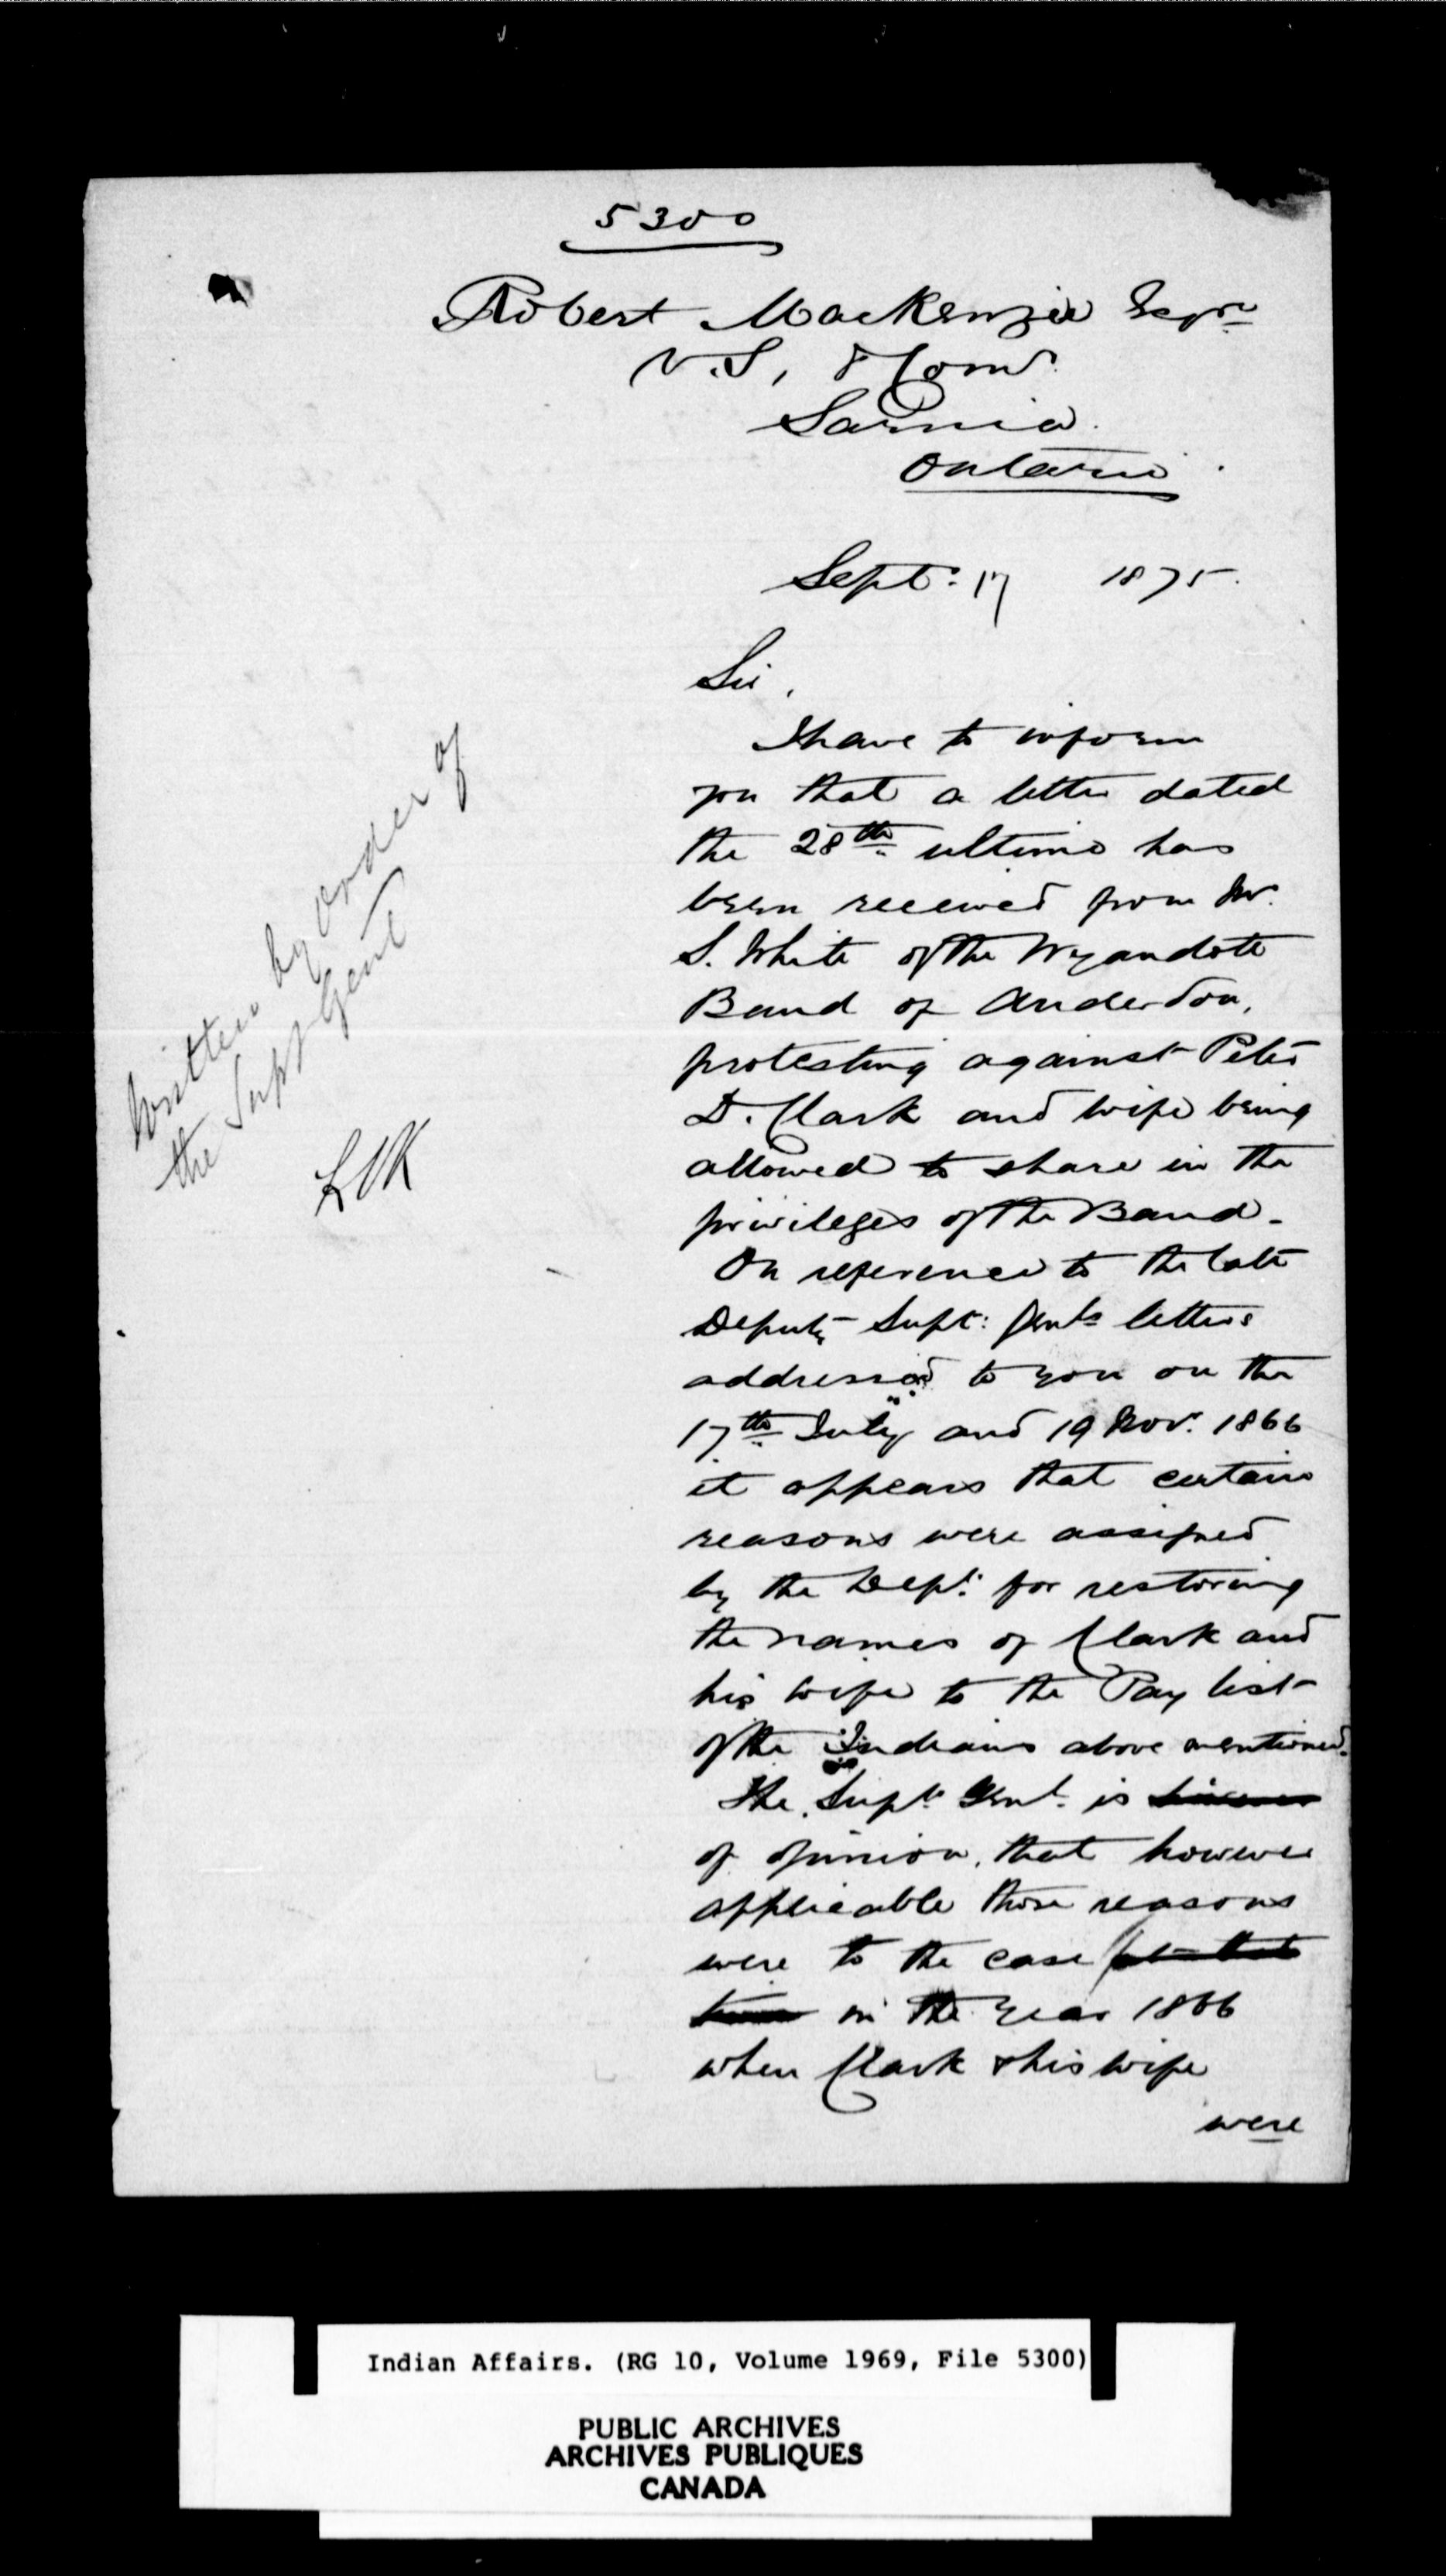 5300
Robert MacKenzie Esqre
V.S, & Comr
Sarnia.
Ontario.
Sept: 17 1875.
Sir,
I have to inform
you that a letter dated
the 28th ultimo has
been received from Mr.
S. White of the Wyandott
Band of Anderdon,
protesting against Peter
D. Clark and wife being
allowed to share in the
privileges of the Band.
On reference to the late
Deputy Supt: Genls letters
addressed to you on the
17th July and 19 Nov. 1866
it appears that certain
reasons were assigned
by the Dept. for restoring
the names of Clark and
his wife to the Pay list
of the Indians above mentioned.
The Supt. Genl. is
of opinion, that however
applicable those reasons
were to the case at that
time in the year 1866
when Clark & his wife
were
Written by order of
the Supt Genl
LVK
Indian Affairs. (RG 10, Volume 1969, File 5300)
PUBLIC ARCHIVES
ARCHIVES PUBLIQUES
CANADA